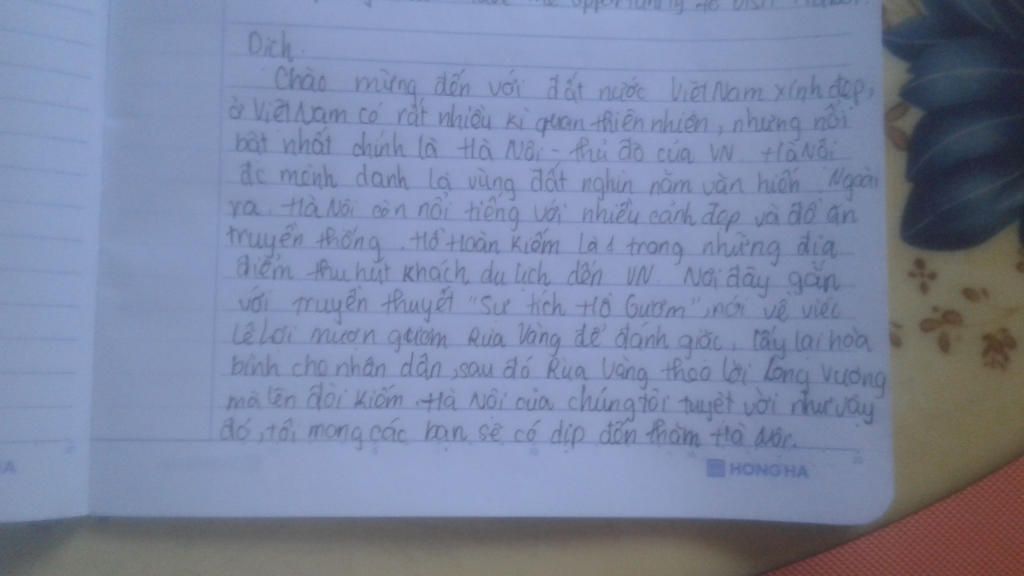 opportunity to visit
Dịch.
Chào mừng đến với đất nước Việt Nam xinh đẹp,
ở Việt Nam có rất nhiều kì quan thiên nhiên, nhưng nổi
bật nhất chính là Hà Nội - thủ đô của VN. Hà Nội
đc mệnh danh là vùng đất nghìn năm văn hiến. Ngoài
ra, Hà Nội còn nổi tiếng với nhiều cảnh đẹp và đồ ăn
truyền thống. Hồ Hoàn Kiếm là 1 trong những địa
điểm thu hút khách du lịch đến VN. Nơi đây gắn
với truyền thuyết "Sự tích Hồ Gươm", nói về việc
Lê Lợi mượn gươm Rùa Vàng để đánh giặc, lấy lại hòa
bình cho nhân dân, sau đó Rùa Vàng theo lời Long Vương
mà lên đòi kiếm. Hà Nội của chúng tôi tuyệt vời như vậy
đó, tôi mong các bạn sẽ có dịp đến thăm Hà Nội.
HONG HA
HA